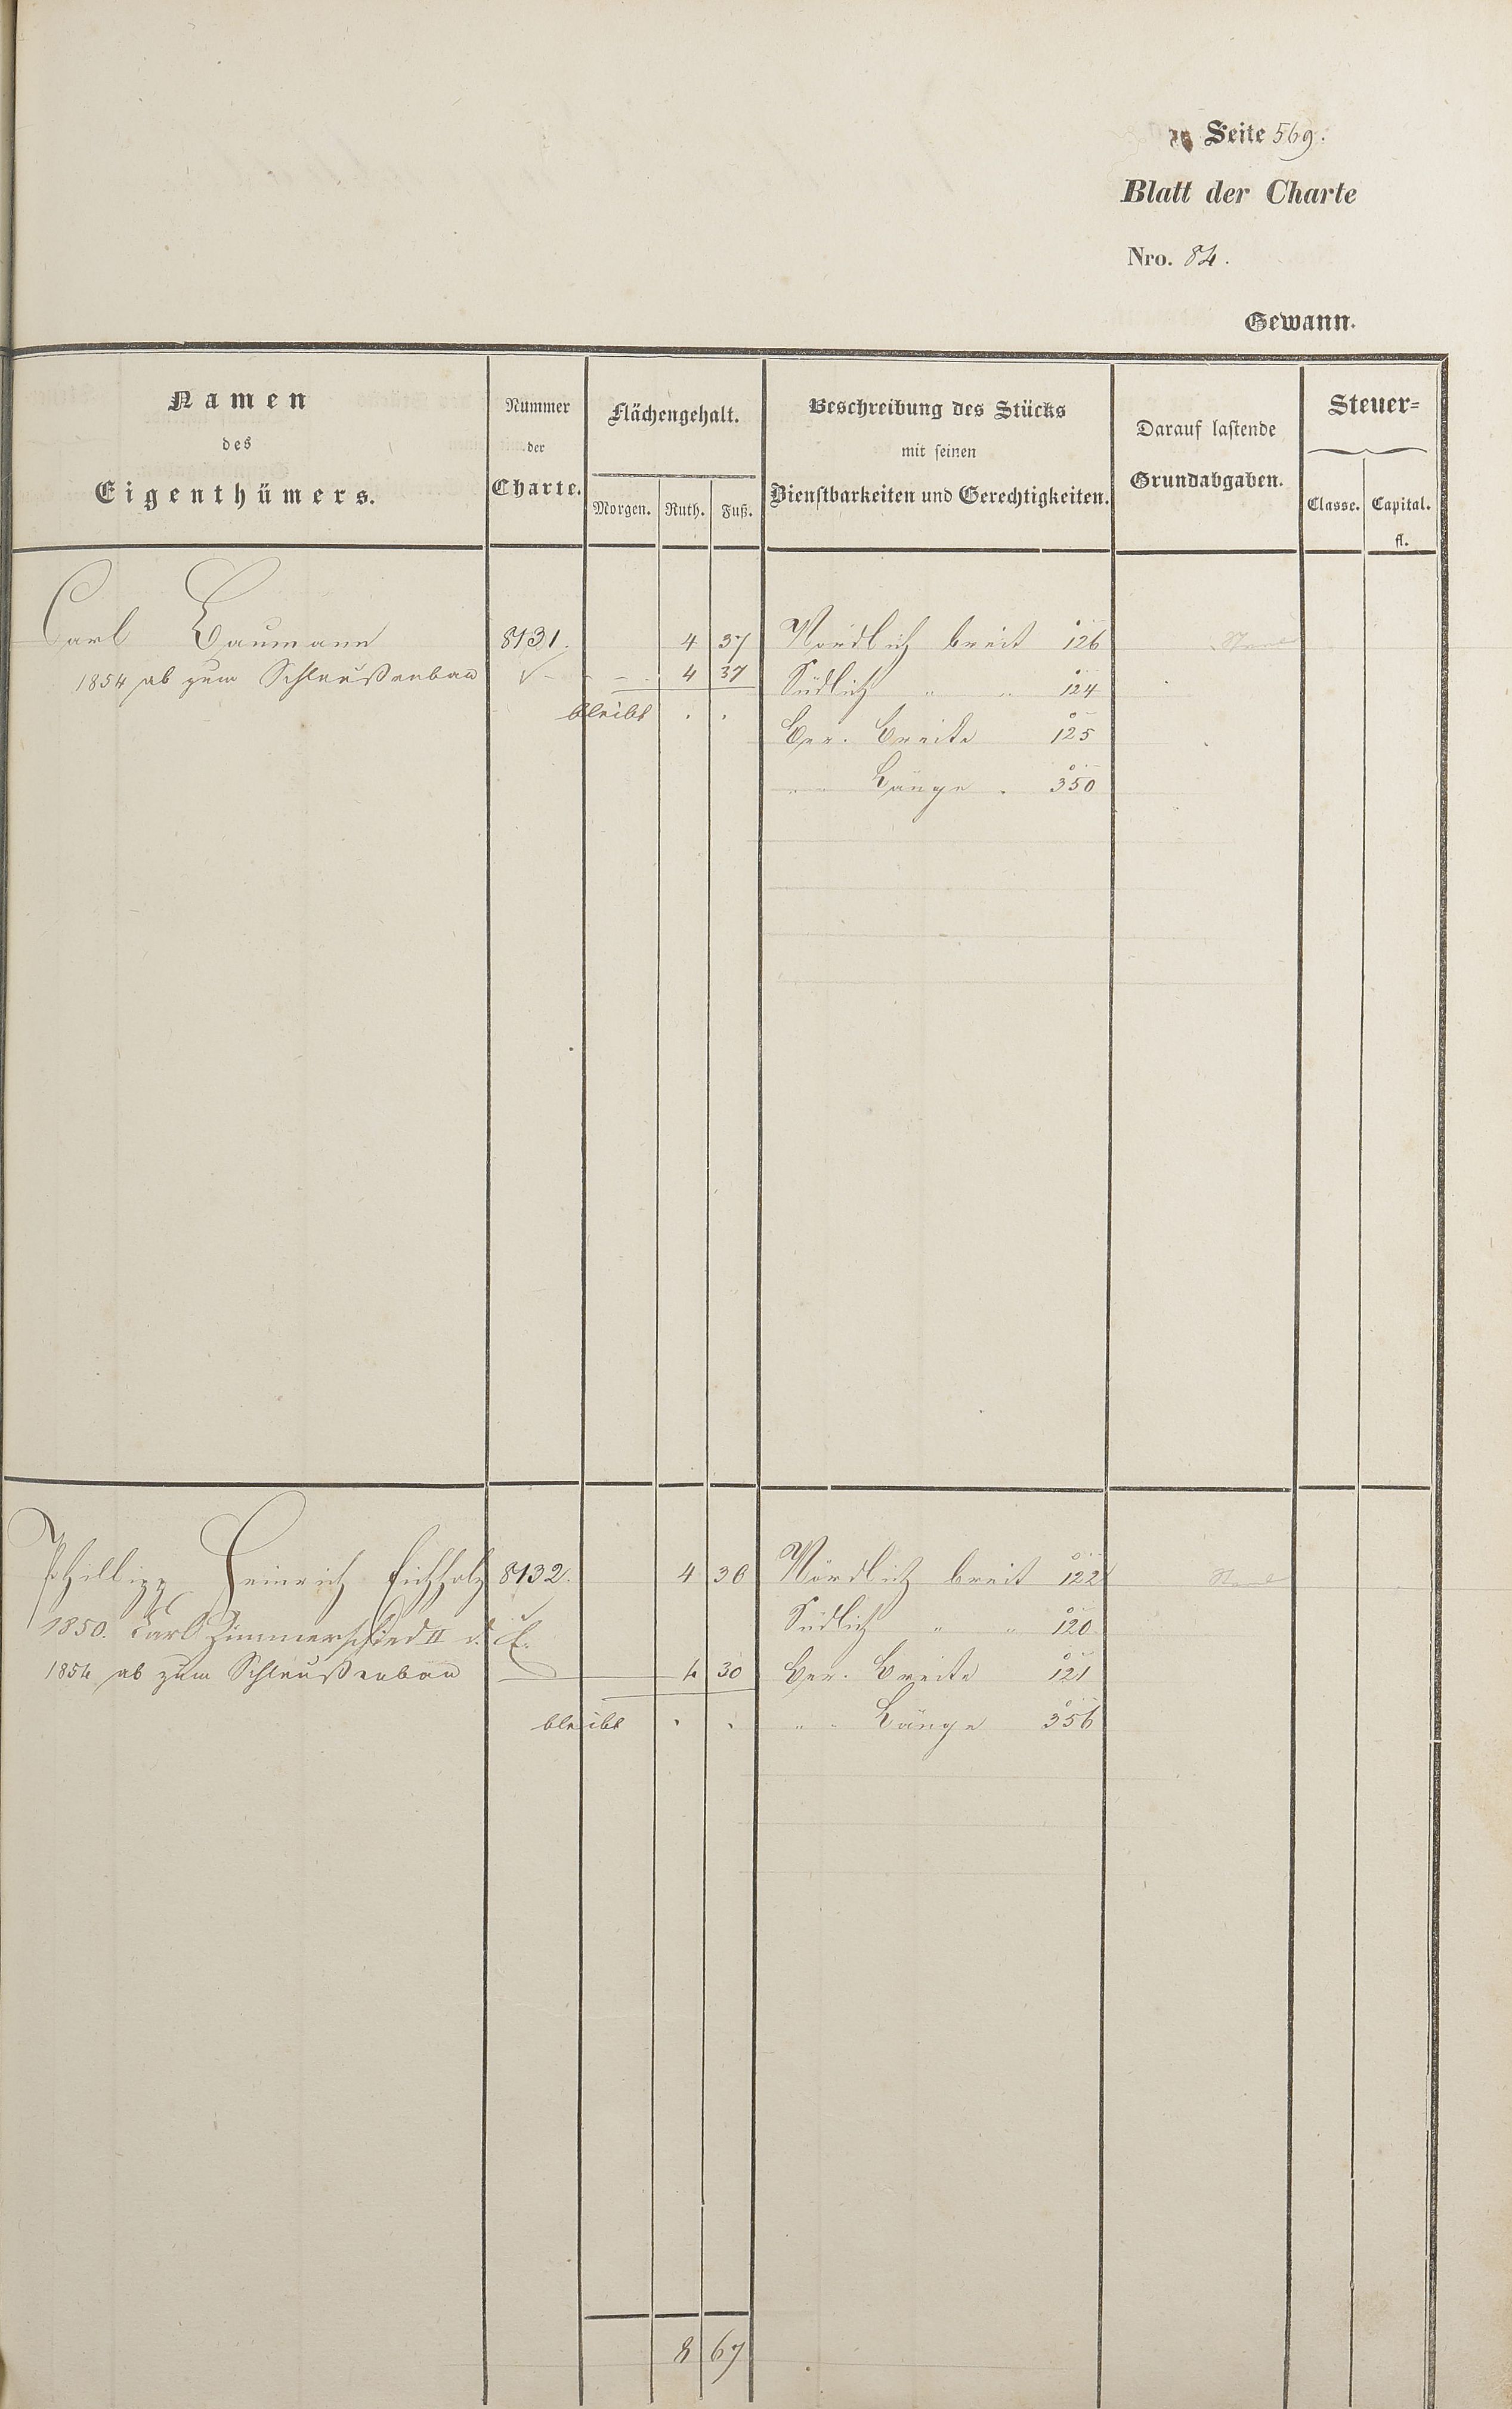 Seite 569.
Blatt der Charte
Nro. 84.
Gewann.
Namen
des
Eigenthümers.
Nummer
der
Charte.
Flächengehalt.
Morgen. Ruth. Fuß.
Beschreibung des Stücks
mit seinen
Dienstbarkeiten und Gerechtigkeiten.
Darauf lastende
Grundabgaben.
Steuer=
Classe. Capital.
fl.
Carl Baumann 8131. 4 37 Nördlich breit 126
1854 ab zum Schleußenbau 4 37 Südlich " " 124
bleibt . . Ber. Breite 125
" " Länge . 350
Phillipp Heinrich Eichholz 8132. 4 30 Nördlich breit 122
1850. Carl Zimmerschied II Südlich " " 120
1854 ab zum Schleußenbau 4 30 Ber. Breite 121
bleibt . . " " Länge 356
8 67